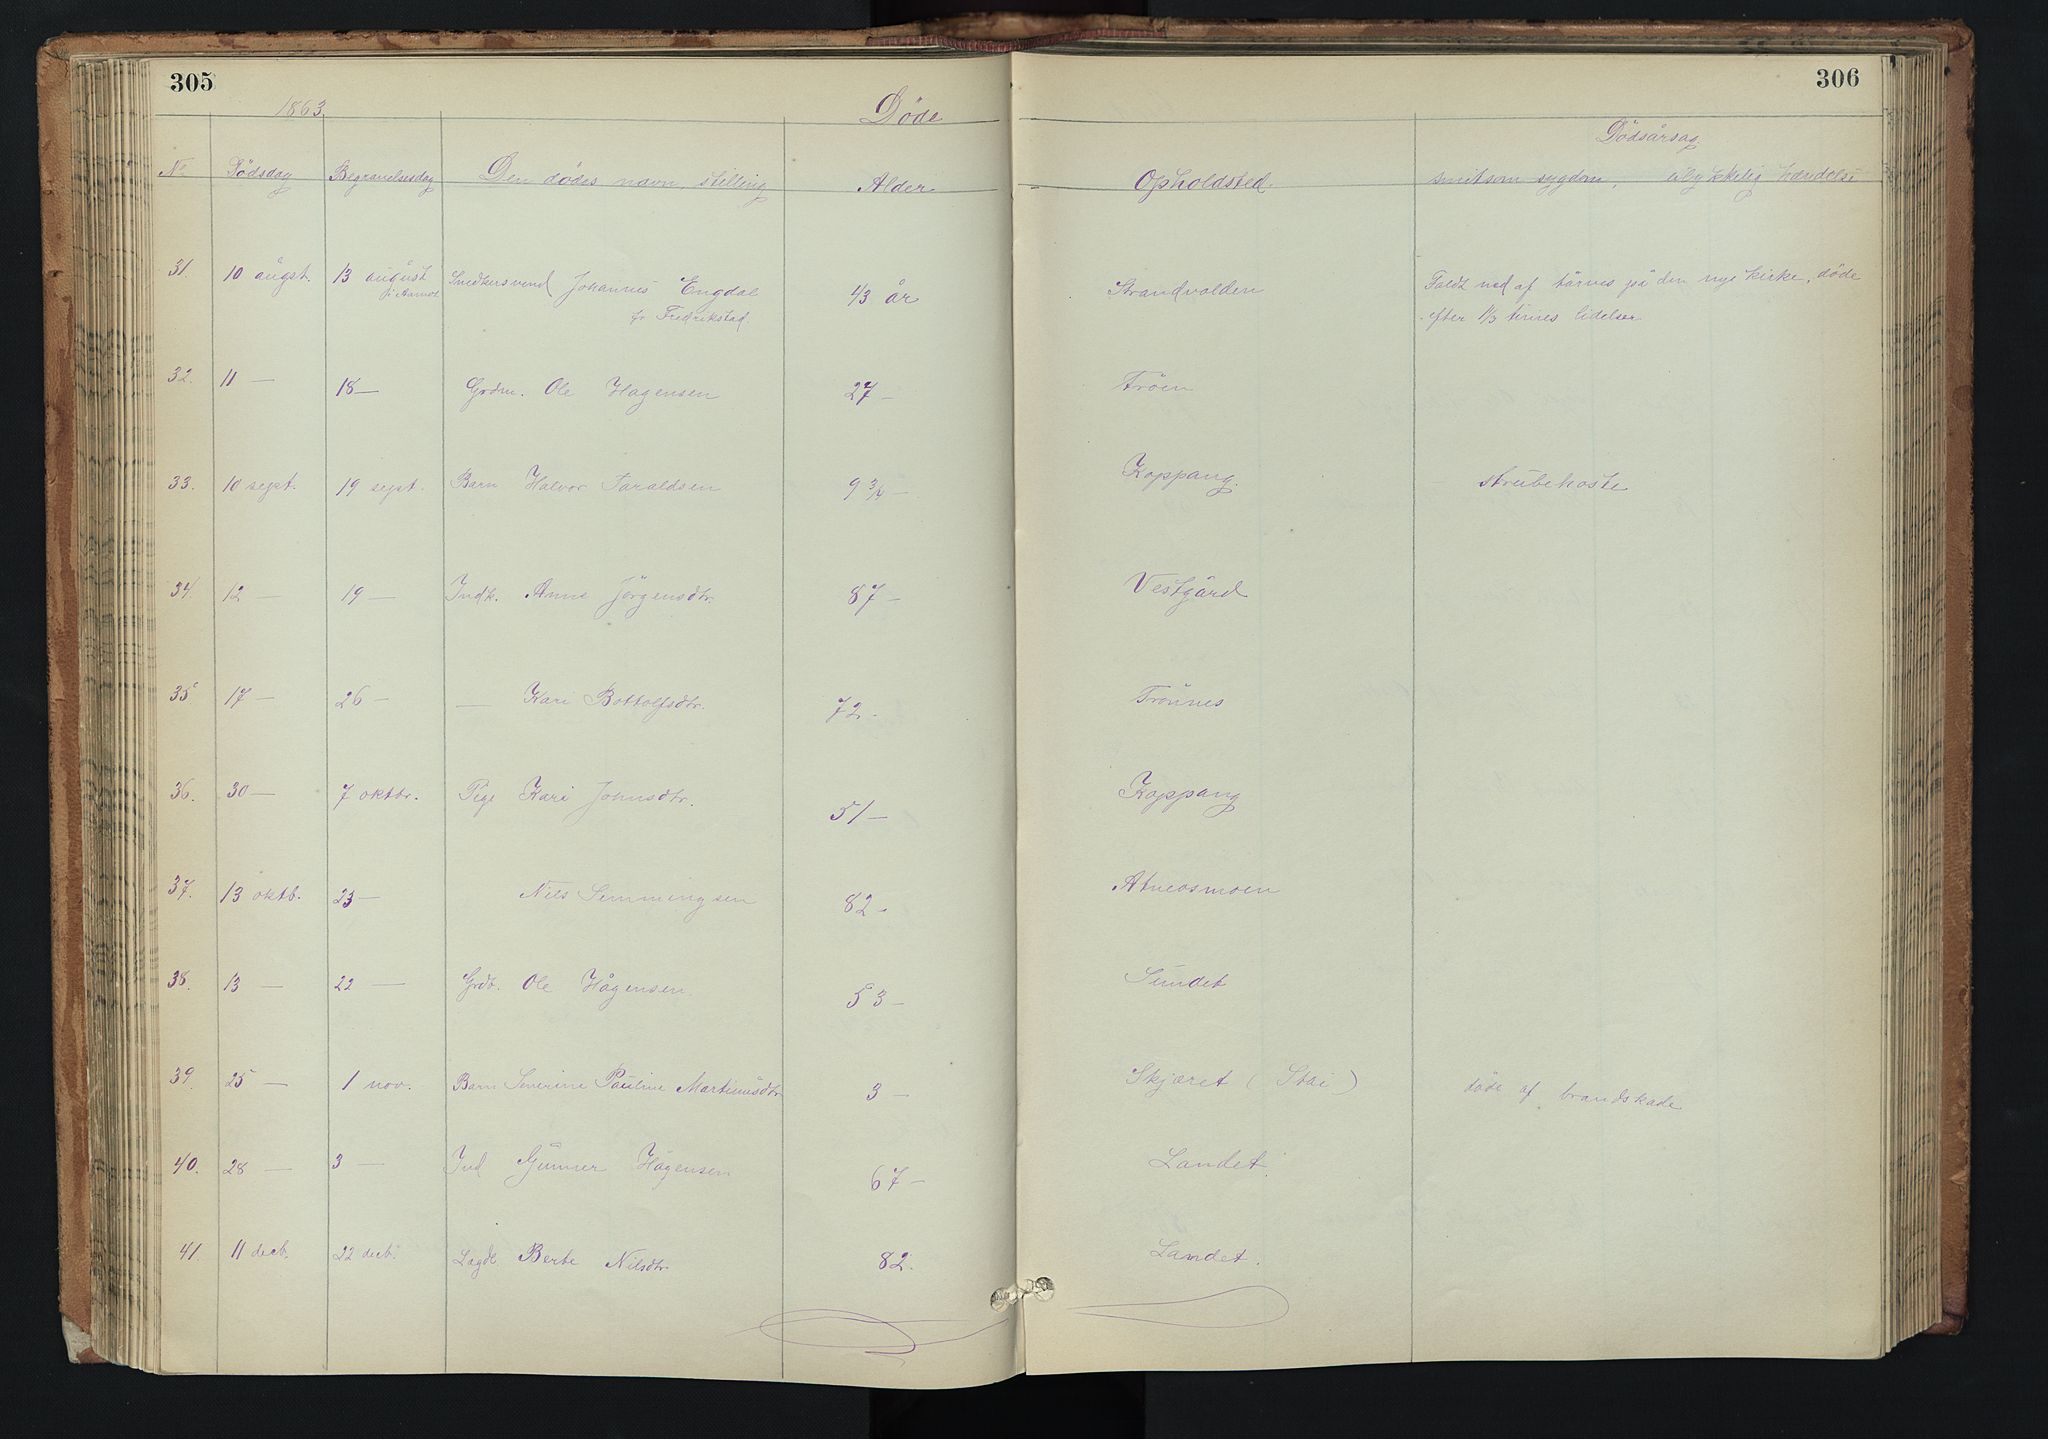 305
306
1863
Døde
Dödsårsag.
No Dödsdag Begravelsesdag Den dödes navn, stilling Alder Opholdsted. smitsom sygdom, ulykkelig hændelse
31. 10 august. 13 august Snedkersvend Johannes Engdal 43 år Strandvolden Faldt ned af tårnet på den nye kirke, döde
i Aamot fr Fredrikstad. efter 1/3 times lidelser
32. 11 — 18 — Grdm. Ole Hagensen 27 — Tröen
33. 10 sept. 19 sept. Barn Halvor Taraldsen 9 3/6 — Koppang. strubehoste
34. 12 — 19 — Indk. Anne Jörgensdtr. 87 — Vestgård
35 17 — 26 — — Kari Bottolfsdtr. 72 - Trönnes
36. 30 — 7 oktbr. Pige Kari Johnsdtr. 51 — Koppang
37. 13 oktb. 23 — Nils Semmingsen 82 - Atneosmoen
38. 13 — 22 — Grdb. Ole Hågensen 53 — Sundet
39. 25 — 1 nov. Barn Severine Pauline Martinusdtr 3 — Skjæret (Stai) döde af brandskade
40. 28 — 3 — Ind Gunner Hågensen 67 — Landet.
41. 11 decb. 22 decb. Lagd. Berte Nilsdtr. 82. Landet.